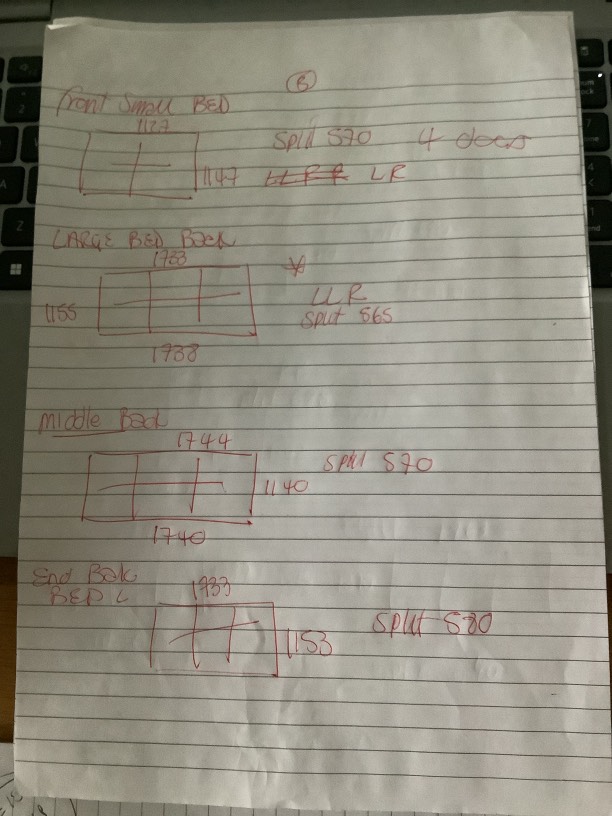 6
Front Small BED
1127
Split 570 4 doors
1147 LLRR LR
LARGE BED Back
1733
1155
LLR
Split 565
1738
Middle Bed
1744
Split 570
1140
1740
End Back
BED L
1733
Split 580
1153